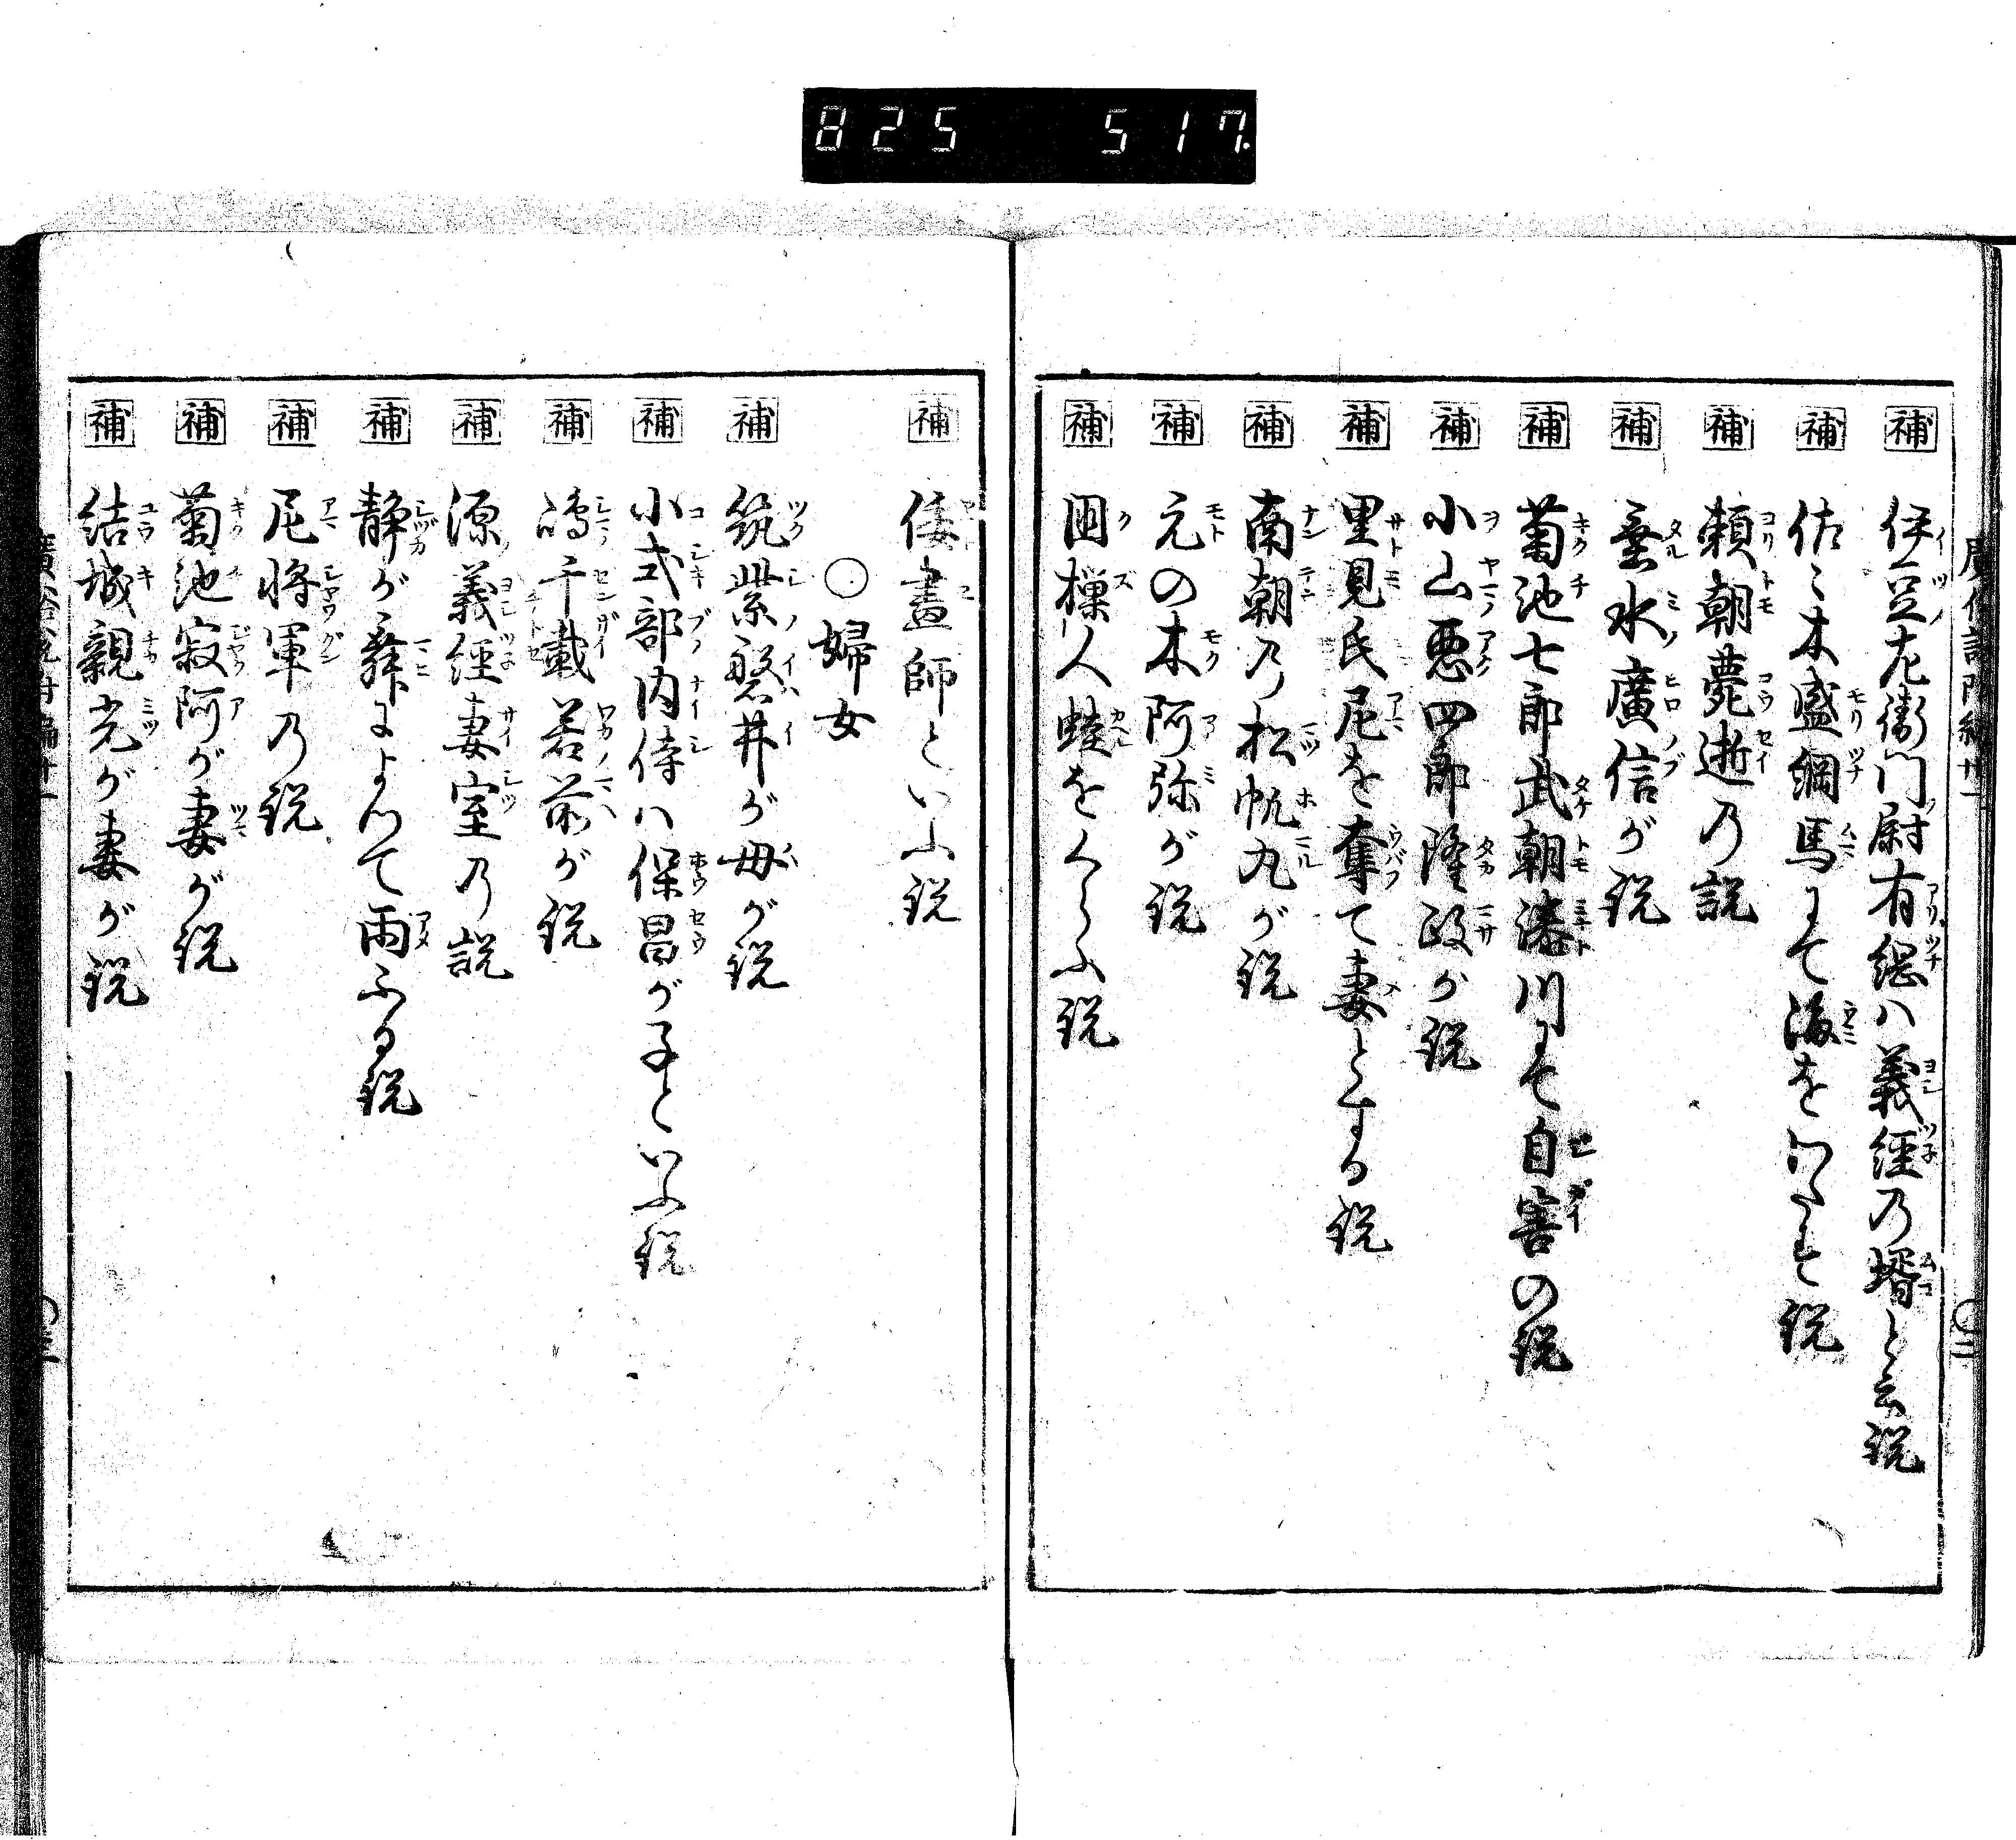 825 517.
補 伊豆左衛門尉有綱ハ義経乃壻と云説
補 佐〻木盛綱馬にて海をわたす説
補 頼朝薨逝乃説
補 垂水廣信が説
補 菊池七郎武朝湊川にて自害の説
補 小山悪四郎隆政が説
補 里見氏尼を奪て妻とする説
補 南朝乃松帆丸が説
補 元の木阿弥が説
補 国樔人蛙をくらふ説
補 倭畫師といふ説
〇婦女
補 筑紫磐井が母が説
補 小式部内侍ハ保昌が子といふ説
補 嶋千載若前が説
補 源義經妻室乃説
補 静が舞によつて雨ふる説
補 尼将軍乃説
補 菊池寂阿が妻が説
補 結城親光が妻が説